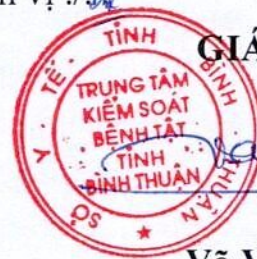 GIÁ
SỞ Y TẾ TỈNH BÌNH THUẬN
TRUNG TÂM
KIỂM SOÁT
BỆNH TẬT
TỈNH
BÌNH THUẬN